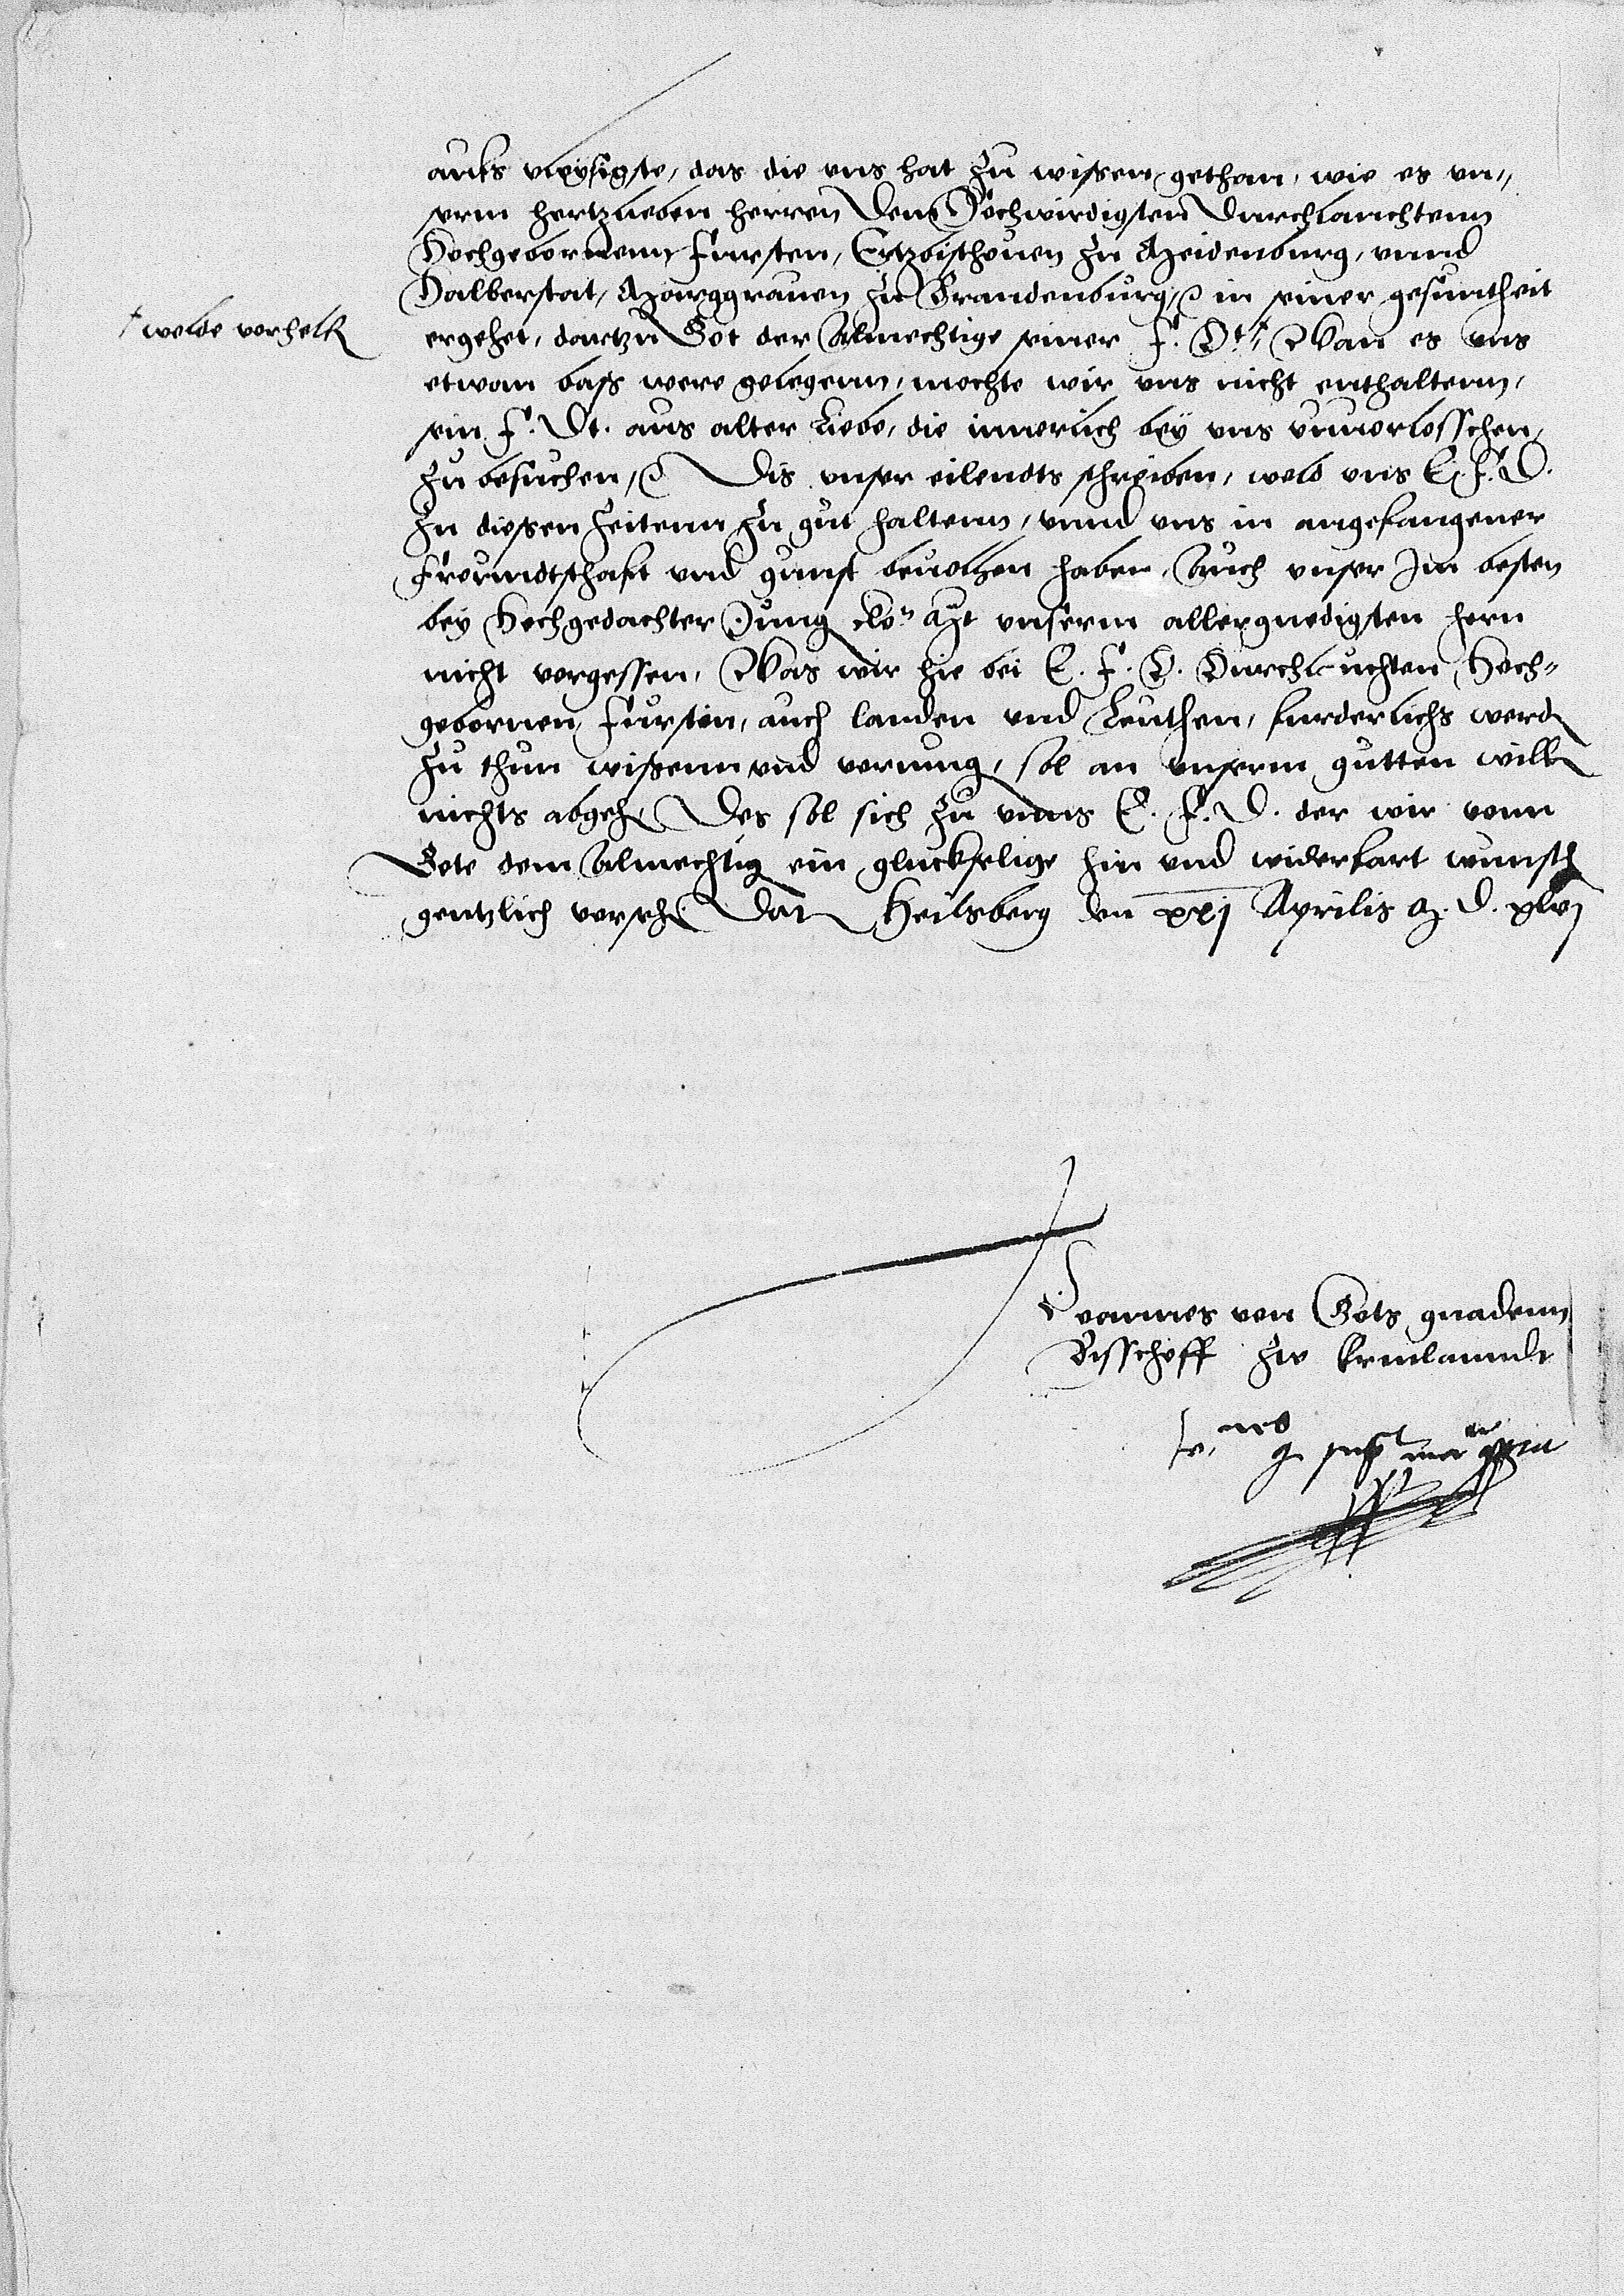 aufs vleysigste, das die uns hat zu wissen gethan, wie es un-
serm hertzlieben herren Dem Hochwirdigsten Durchlauchtenn
Hochgebornenn Fursten, Ertzbischouen zu Meidenburg, unnd
Halberstat, Marggrauen zu Brandenburg, in seiner gesuntheit
† wolde vorhelf
ergehet, dartzu Got der Almechtige seiner F. Dt. † Wan es uns
etwan bass were gelegenn, mochte wir uns nicht enthaltenn,
sein F. Dt. aus alter Liebe, die innerlich bey uns unuorlosschen,
zu besuchen, Dis unser eilendts schreiben, wold uns E. F. D.
zu diesen Zeitenn zu gut haltenn, unnd uns in angefangener
Freundtschaft und gunst beuolhen haben, Auch unser Im besten
bey Hochgedachter Jung Ko. Mt unserm allergnedigsten hern
nicht vorgessen, Was wir hie bei E. F. D. Durchluchten Hoch-
gebornen Furstin, auch landen und Leuthen, furderlichs werd
zu thun wissenn und vermug, sol an unserm gutten will
nichts abgeh Des sol sich zu unns E. F. D. der wir vonn
Gote dem Almechtig ein gluckselige hin und widerfart wunsch
gentzlich vorseh Dat Heilsberg den xxj Aprilis M. D. xlvj
Joannes von Gots gnadenn
Bisschoff zw Ermlanndt